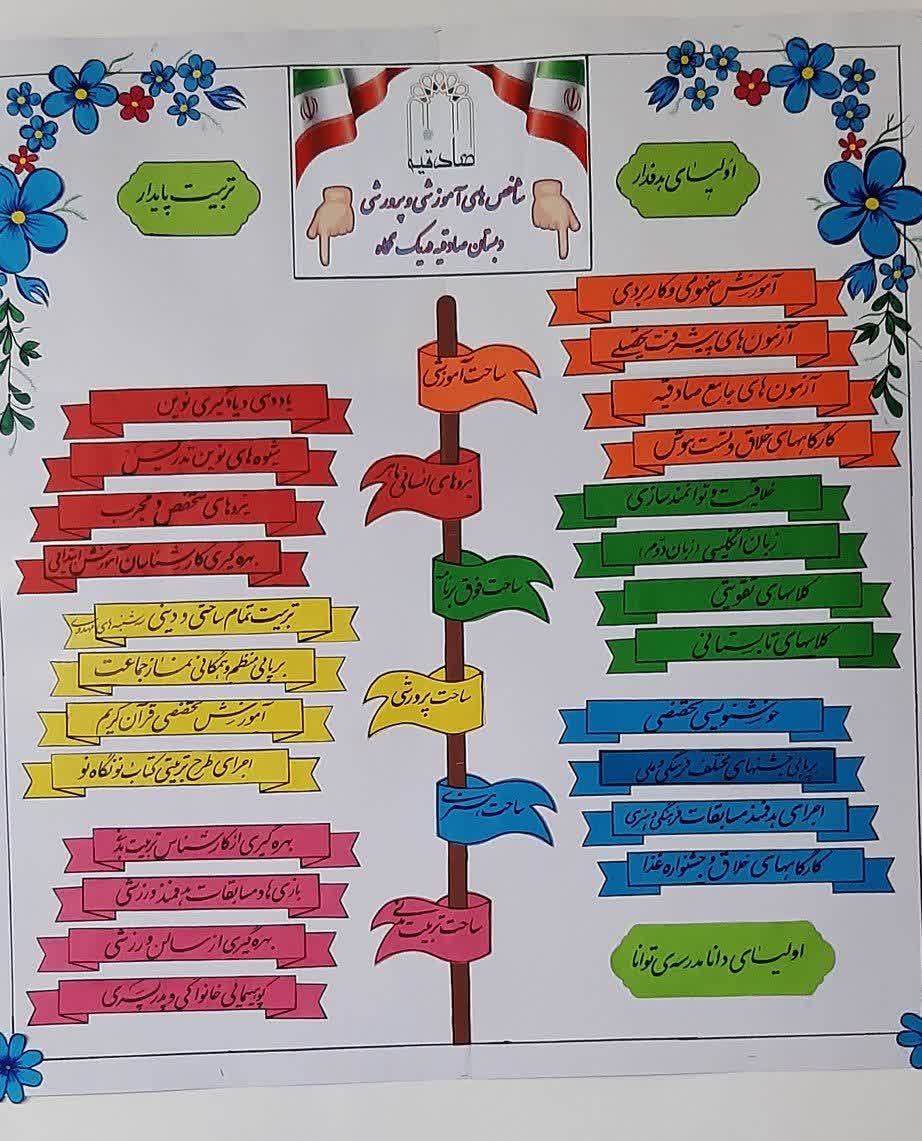 صادقیه
شاخص های آموزشی و پرورشی
دبستان صادقیه در یک نگاه
اولیای هدفدار
تربیت پایدار
ساحت آموزشی
آموزش مفهومی و کاربردی
آزمون های پیشرفت تحصیلی
آزمون های جامع صادقیه
کارگاههای خلاق و تست هوش
نیروهای انسانی ماهر
یاددهی و یادگیری نوین
شیوه های نوین تدریس
نیروهای متخصص و مجرب
بهره گیری کارشناسان آموزش ابتدایی
ساحت فوق برنامه
خلاقیت و توانمندسازی
زبان انگلیسی (زبان دوم)
کلاسهای تقویتی
کلاسهای تابستانی
ساحت پرورشی
تربیت تمام ساحتی و دینی سه‌شنبه های مهدوی
برپایی منظم و همگانی نماز جماعت
آموزش تخصصی قرآن کریم
اجرای طرح تربیتی کتاب نو نگاه نو
ساحت هنری
خوشنویسی تخصصی
برپایی جشنهای مختلف فرهنگی و ملی
اجرای هدفمند مسابقات فرهنگی و هنری
کارگاههای خلاق و جشنواره غذا
ساحت تربیت بدنی
بهره گیری از کارشناس تربیت بدنی
بازی ها و مسابقات هدفمند ورزشی
بهره گیری از سالن ورزشی
کوهپیمایی خانوادگی و پدر پسری
اولیای دانا مدرسه ی توانا